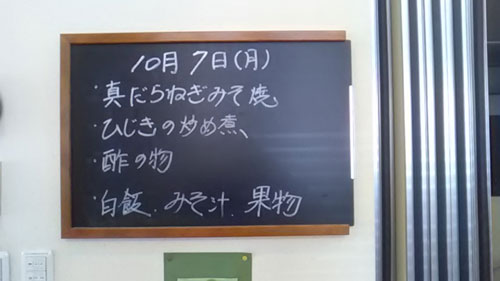 10月7日(月)
・真だらねぎみそ焼
・ひじきの炒め煮
・酢の物
・白飯、みそ汁、果物